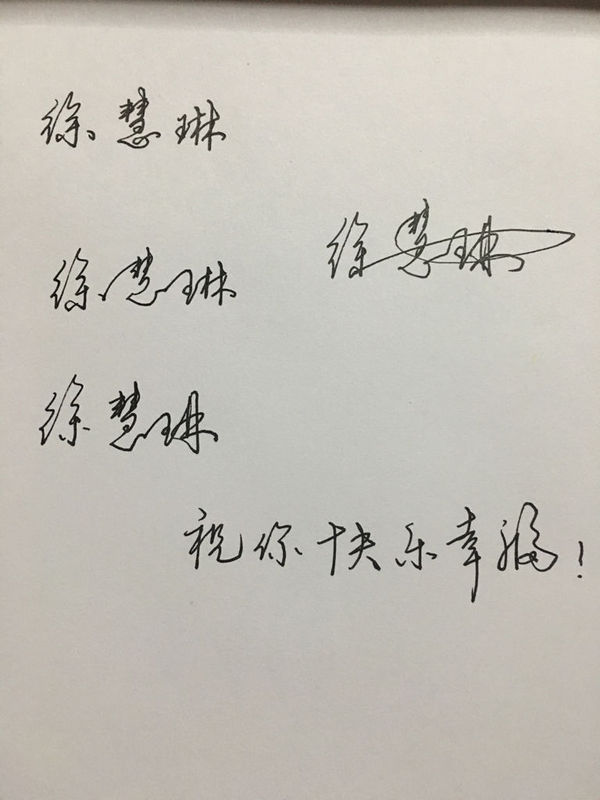 徐慧琳
徐慧琳
徐慧琳
徐慧琳
祝你快乐幸福！